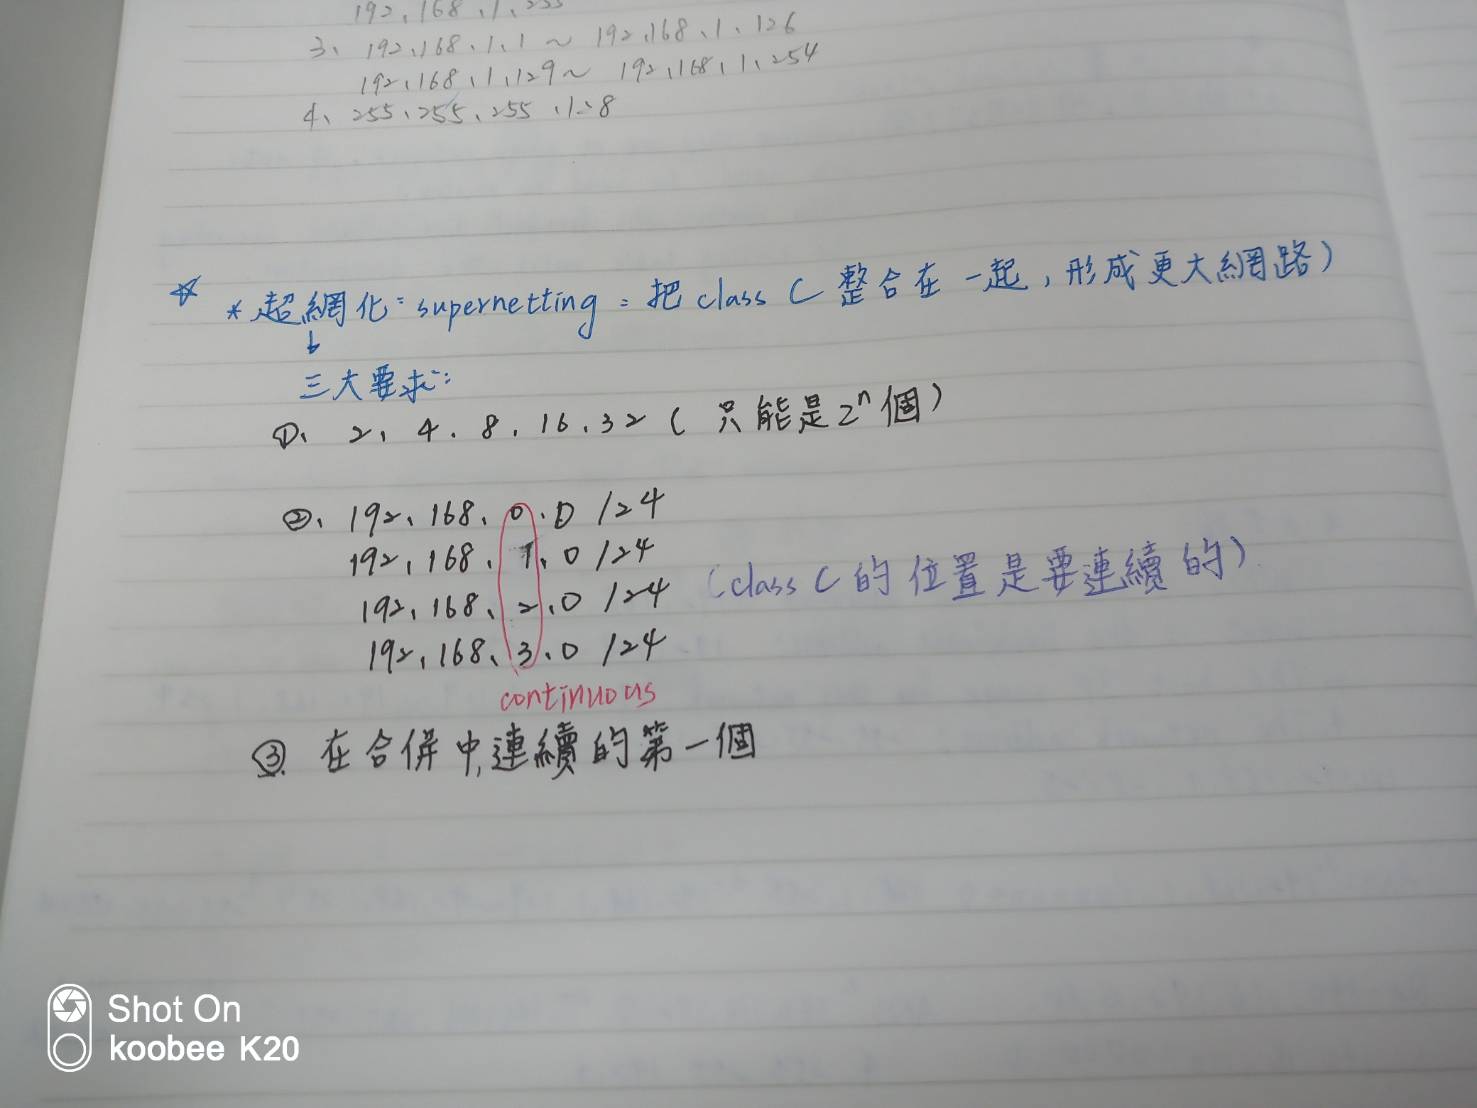 192.168.1.255
3、192.168.1.1 ~ 192.168.1.126
192.168.1.129 ~ 192.168.1.254
4、255.255.255.128
* 超網化: supernetting: 把 class C 整合在一起, 形成更大網路)
三大要求:
①、2、4、8、16、32 ( 只能是2ⁿ個)
②、192.168.0.0 /24
192.168.1.0 /24
(class C 的位置是要連續的)
192.168.2.0 /24
192.168.3.0 /24
continuous
③ 在合併中,連續的第一個
Shot On
koobee K20